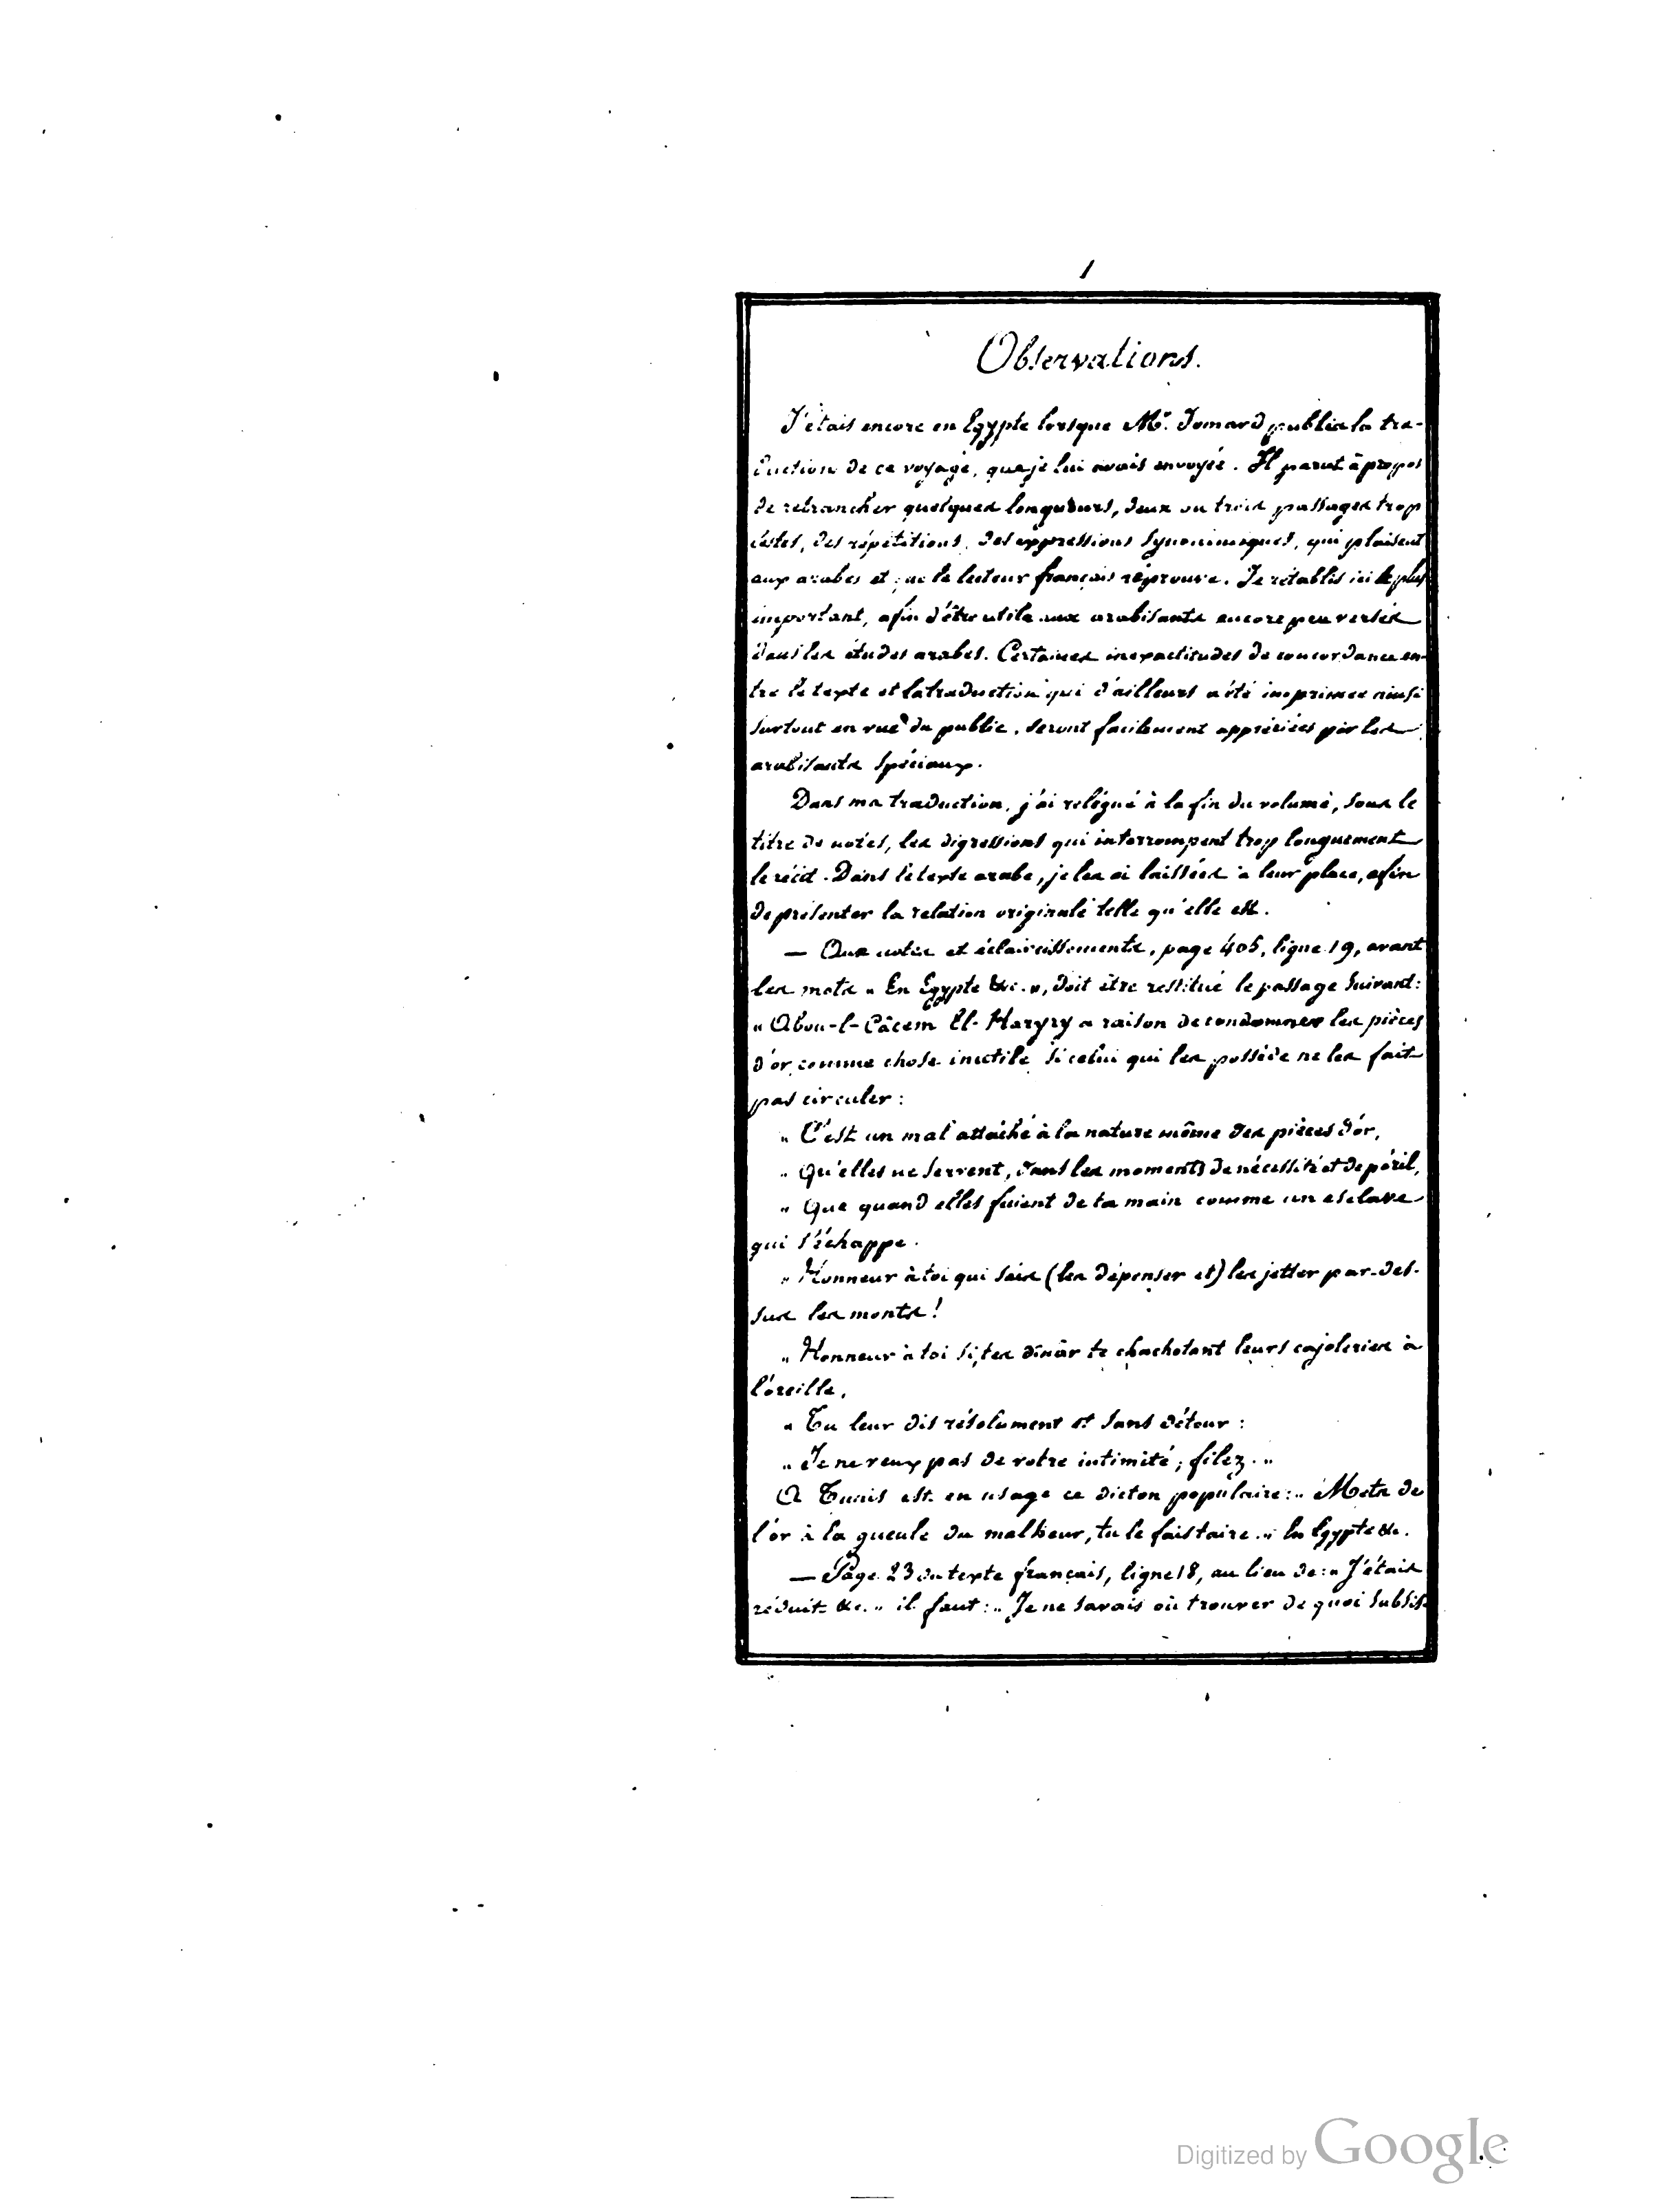 1
Observations.
J'étais encore en Egypte lorsque Mr. Jomard publia la tra-
duction de ce voyage, que je lui avais envoyée. Il parut à propos
de retrancher quelques longueurs, deux ou trois passages trop
lestes, des répétitions, des expressions synonimiques, qui plaisent
aux arabes et que le lecteur français réprouve. Je rétablis ici le plus
important, afin d'être utile aux arabisants encore peu versés
dans les études arabes. Certaines inexactitudes de concordance en-
tre le texte et la traduction qui d'ailleurs a été imprimée ainsi
surtout en vue du public, seront facilement appréciées par les
arabisants spéciaux.
Dans ma traduction, j'ai relégué à la fin du volume, sous le
titre de notes, les digressions qui interrompent trop longuement
le récit. Dans le texte arabe, je les ai laissées à leur place, afin
de présenter la relation originale telle qu'elle est.
— Aux notes et éclaircissements, page 405, ligne 19, avant
les mots " En Egypte &c. ", doit être restitué le passage suivant:
" Abou-l-Câcem El-Haryry a raison de condamner les pièces
d'or comme chose inutile si celui qui les possède ne les fait
pas circuler :
" C'est un mal attaché à la nature même des pièces d'or,
" Qu'elles ne servent, dans les moments de nécessité et de péril,
" Que quand elles fuient de ta main comme un esclave
qui s'échappe.
" Honneur à toi qui sais (les dépenser et) les jetter par-des-
sus les monts!
" Honneur à toi si, tes dinâr te chuchotant leurs cajoleries à
l'oreille,
" Tu leur dis résolument et sans détour :
" Je ne veux pas de votre intimité ; filez. "
A Tunis est en usage ce dicton populaire: " Mets de
l'or à la gueule du malheur, tu le fais taire. " En Egypte &c.
— Page 23 du texte français, ligne 18, au lieu de: " J'étais
réduit &c. " il faut: " Je ne savais où trouver de quoi subsis-
Digitized by Google